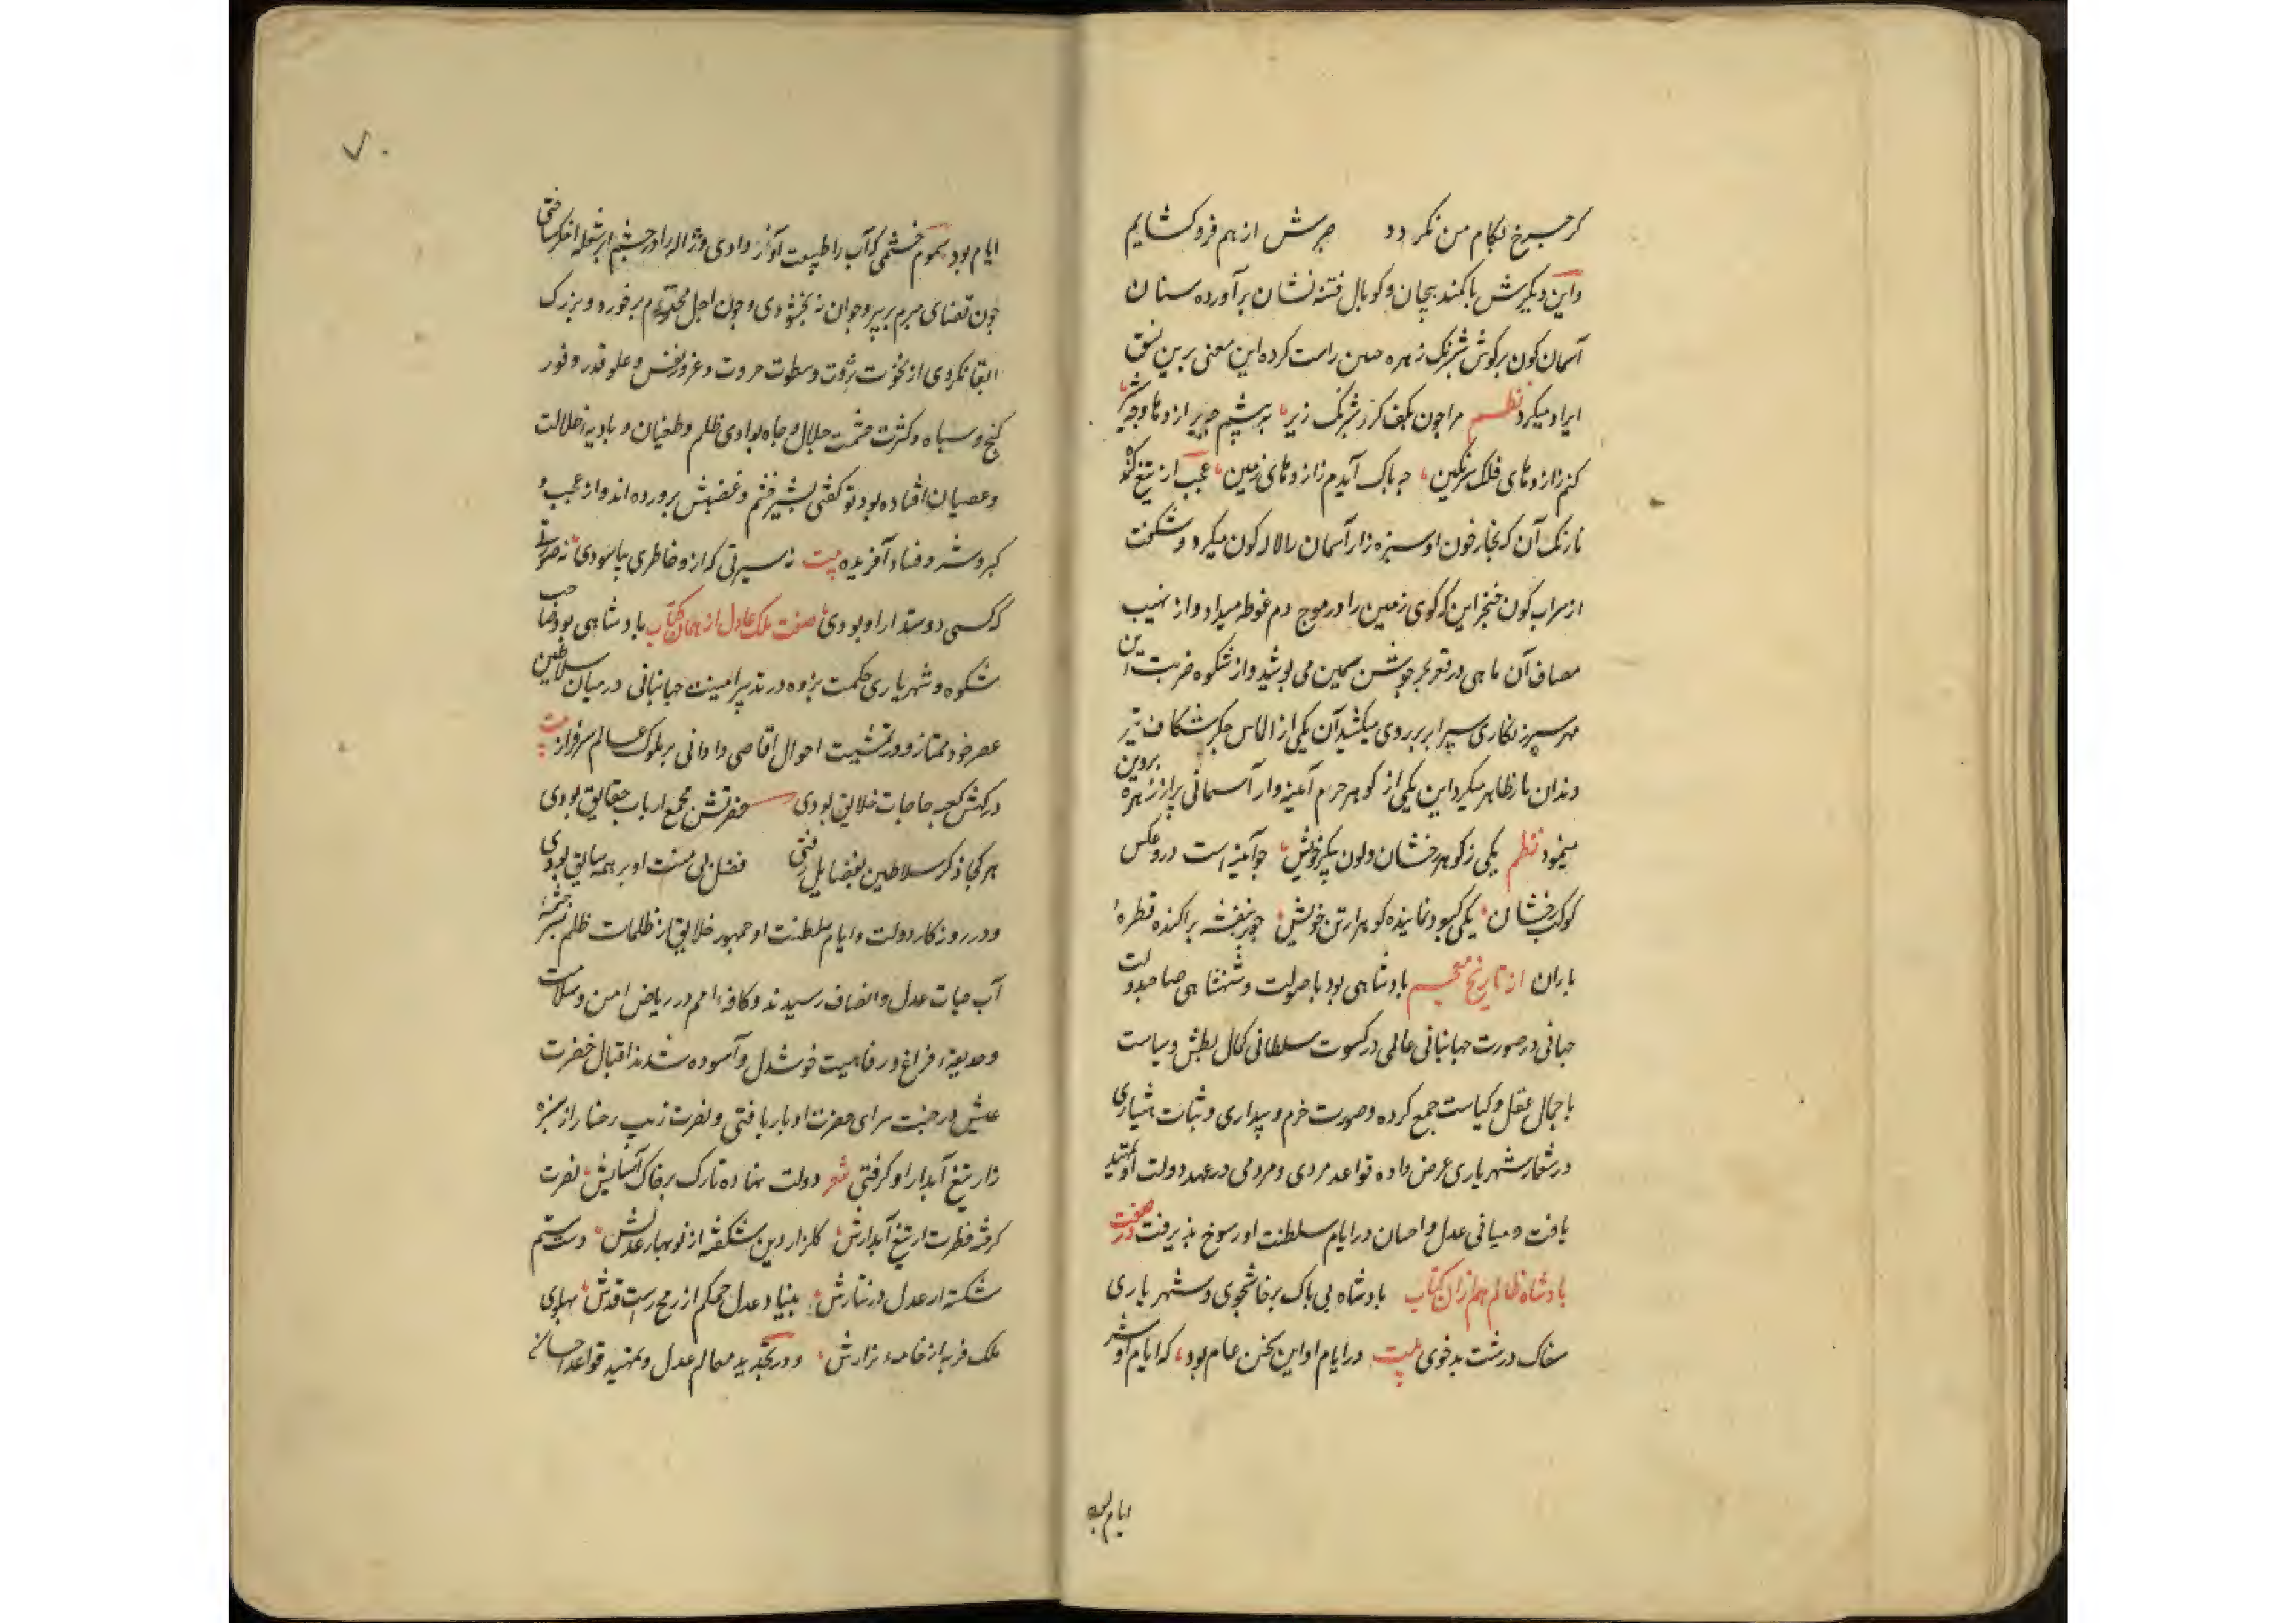 گر چرخ بکام من نگردد چرخش از هم فرو گشایم
واین دیگرش با کمند پیچان و کوپال فتنه نشان برآورده سنان
آسمان کون بر کوش شبرنک زهره جبین راست کرده این معنی برین نسق
ایراد میکرد نظم مرا چون بکف گرز شبرنک زیر به پیشم چه پیر اژدها و چه شیر
کنم ز اژدهای فلک سر بکین چه باک آیدم ز اژدهای زمین عجب از تیغ
نارنک آن که بخار خون او سبزه زار آسمان را لاله کون میکرد و شکفت
از سراب کون خنجر این که کوی زمین را در موج دم غوطه میداد و از نهیب
مصاف آن ماهی در قعر بحر جوشن سیمین می پوشید و از شکوه ضربت این
مهر سپهر زنکاری سپر برابر روی میکشید آن یکی از الماس جکر شکاف تیز
دندان مار ظاهر میکرد این یکی از کوهر جرم آینه وار آسمانی پر از زهره پروین
مینمود نظم یکی ز کوهر رخشان و لون پیکر خویش چو آینه است درو عکس
کوکب رخشان یکی کبود نماینده کوهر از تن خویش چو بر بنفشه پراکنده قطرهٔ
باران از تاریخ معجم پادشاهی بود با صولت و شهنشاهی صاحب دولت
جهانی در صورت جهانبانی عالمی در کسوت سلطانی کمال بطش و سیاست
با جمال عقل و کیاست جمع کرده و صورت حزم و بیداری و ثبات هشیاری
در شعار شهریاری عرض داده قواعد مردی و مردمی در عهد دولت او تمهید
یافت و مبانی عدل و احسان در ایام سلطنت او رسوخ پذیرفت در صفت
پادشاه ظالم هم از آن کتاب پادشاه بی باک پرخاشجوی و شهریاری
سفاک درشت بدخوی بیت در ایام او این سخن عام بود که ایام او شر
ایام بود
۷۰
ایام بود سموم خشمی که آب را طبیعت آذر دادی و ژاله را در چشم ابر شعله اخکر ساختی
چون قضای مبرم بر پیر و جوان نبخشودی و چون اجل محتوم بر خورد و بزرک
ابقا نکردی از نخوت ثروت و سطوت مروت و عز نفس و علو قدر و فور
کنج و سپاه و کثرت حشمت جلال و جاه بوادی ظلم و طغیان و بادیه ضلالت
و عصیان افتاده بود تو کفتی بشیر خشم و غضبش پرورده اند و از عجب و
کبر و شر و فساد آفریده بیت نه سیرتی که ازو خاطری بیاسودی نه صورتی
که کسی دوستدار او بودی صفت ملک عادل از همان کتاب پادشاهی بود صاحب
شکوه و شهریاری حکمت پژوه در تدبیر امینت جهانبانی در میان سلاطین
عصر خود ممتاز و در تمشیت احوال اقاصی و ادانی بر ملوک عالم سرفراز بیت
درکهش کعبه حاجات خلایق بودی حضرتش مجمع ارباب حقایق بودی
هر کجا ذکر سلاطین بفضایل رفتی فضل بی منت او بر همه سابق بودی
و در روزکار دولت و ایام سلطنت او جمهور خلایق از ظلمات ظلم بسر چشمهٔ
آب حیات عدل و انصاف رسیدند و کافه امم در ریاض امن و سلامت
و حدیقهٔ فراغ و رفاهیت خوشدل و آسوده شدند اقبال خضرت
عیش در جنت سرای حضرت او بار یافتی و نصرت زیب رخسار از سبزه
زار تیغ آبدار او کرفتی شعر دولت نهاده تارک بر خاک آستانش نصرت
کرفته فطرت از تیغ آبدارش کلزار دین شکفته از نوبهار عدلش دست ستم
شکسته از عدل در نثارش بنیاد عدل محکم از رمح راست قدش پهلوی
ملک فربه از خامهٔ نزارش و در تجدید معالم عدل و تمهید قواعد احسان